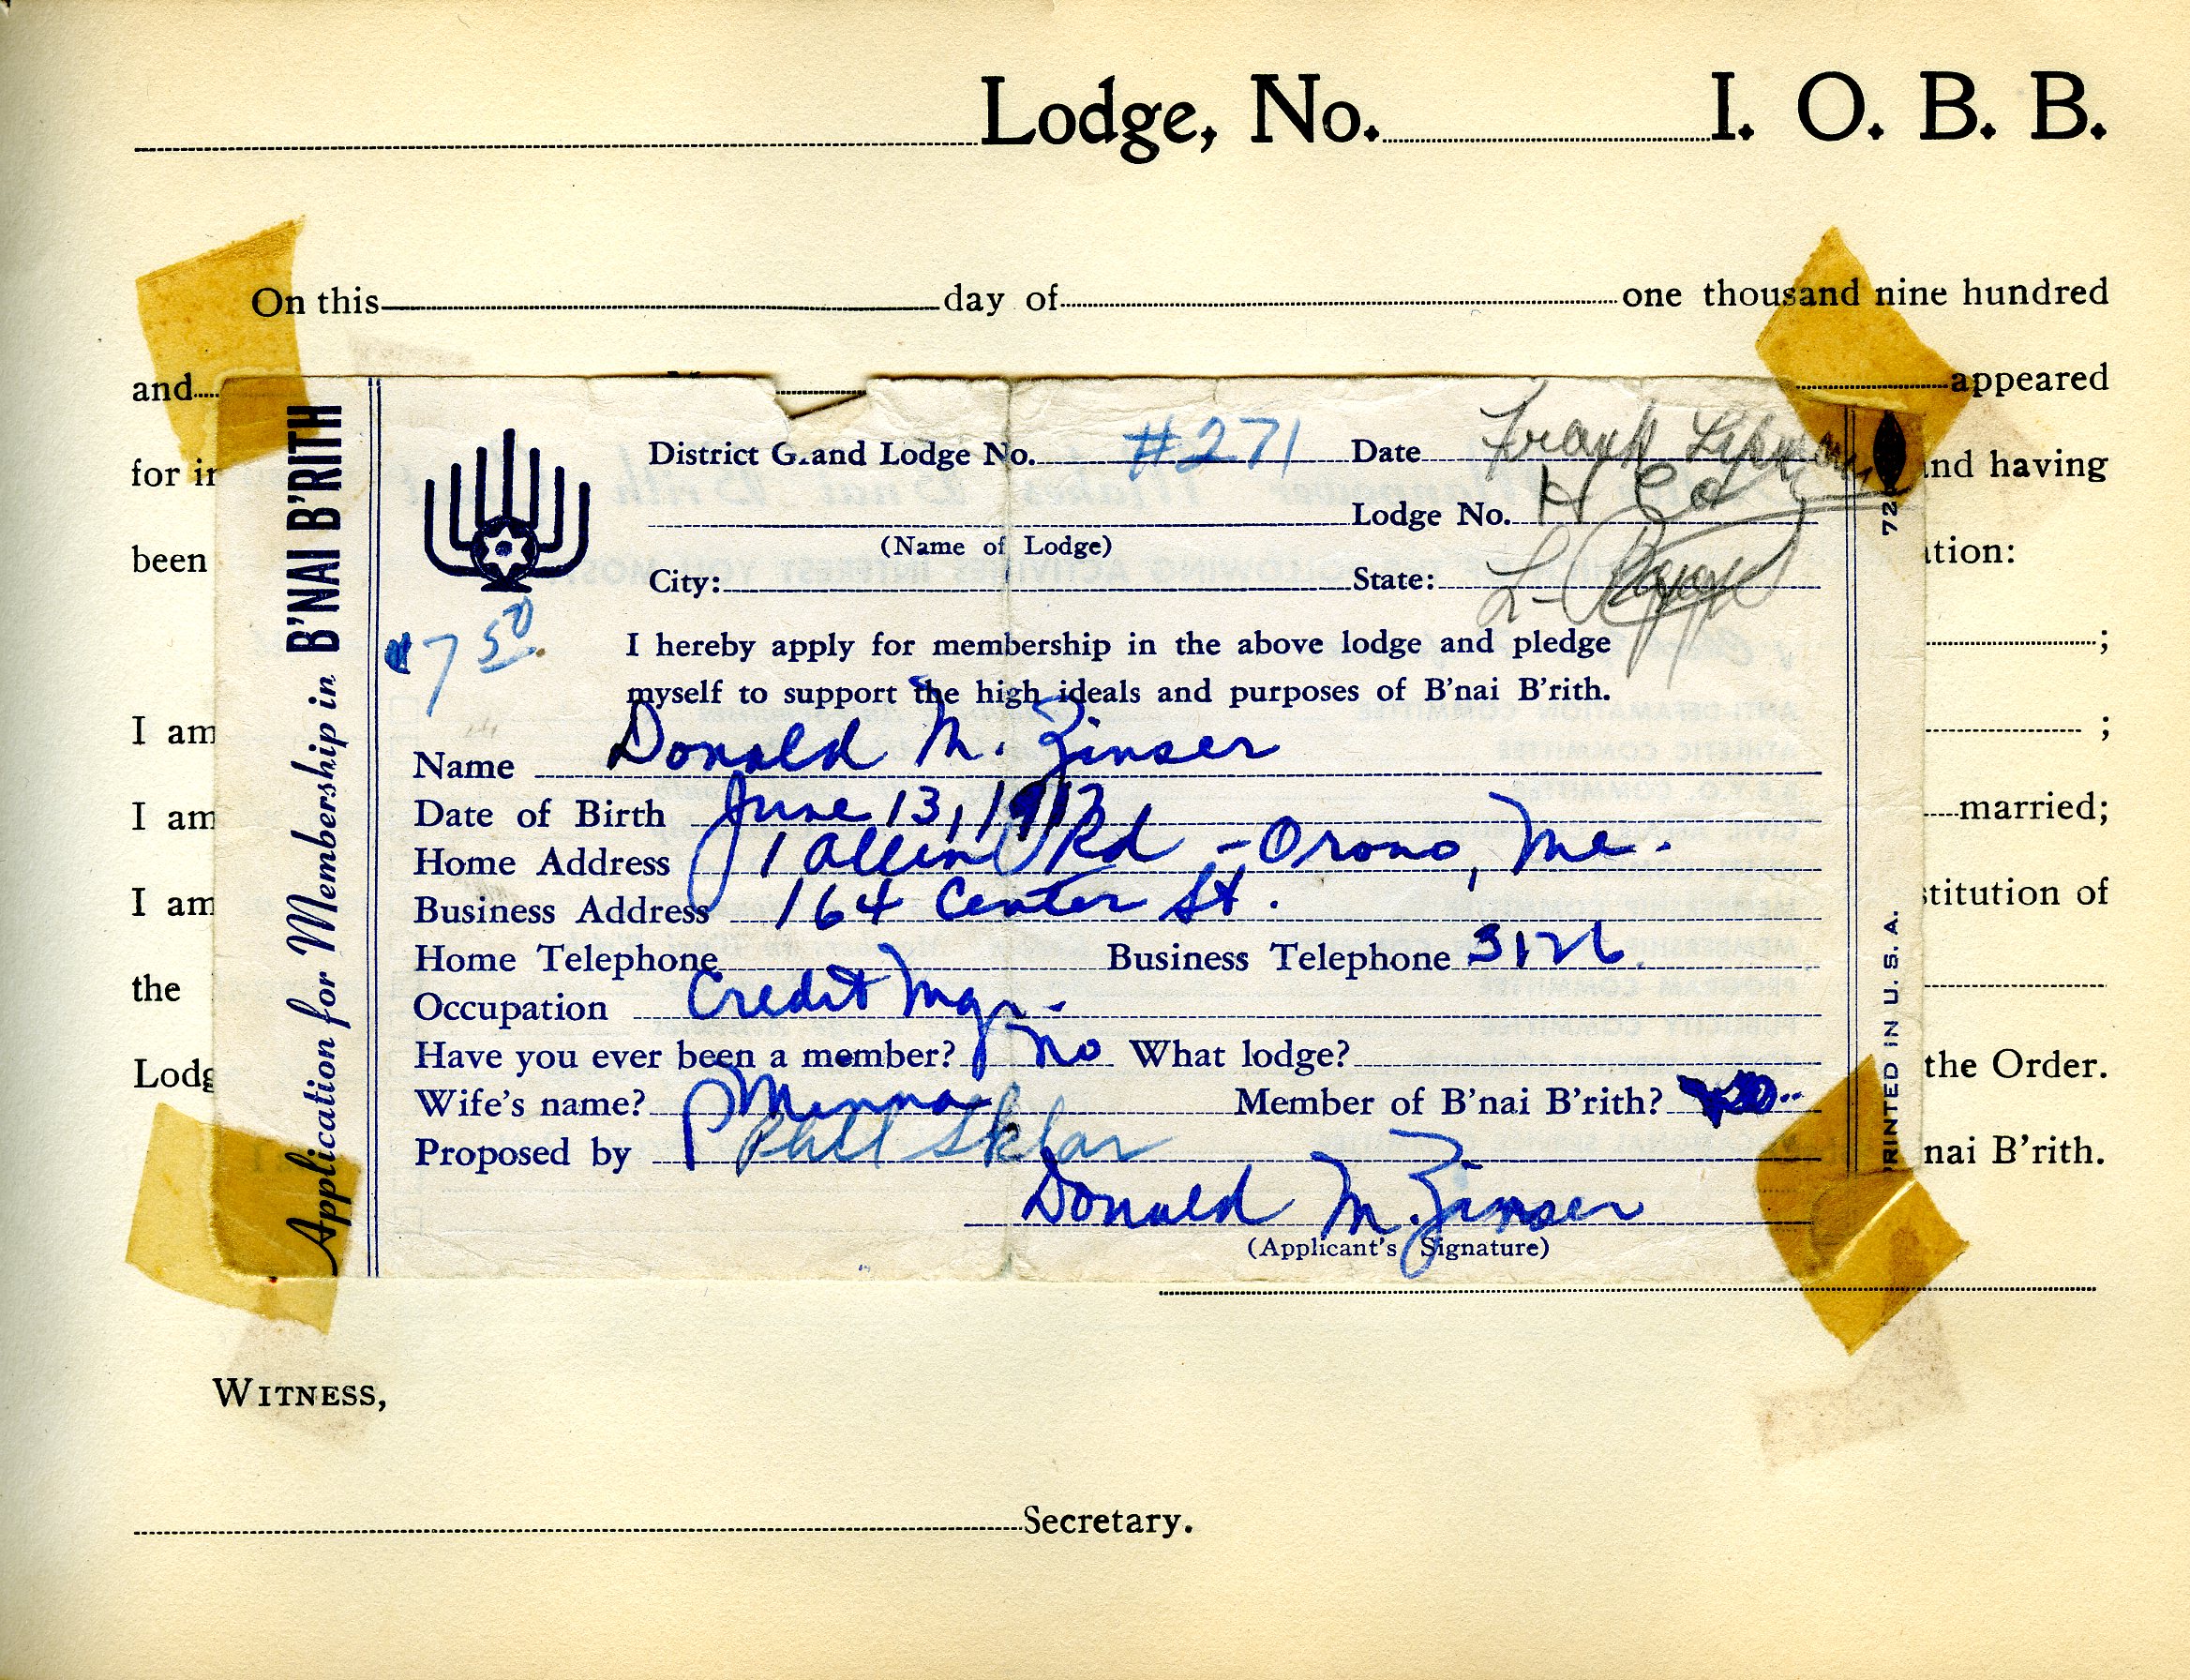 Lodge, No. I. O. B. B.
On this day of one thousand nine hundred
and appeared
for and having
been
I am ;
I am married;
I am
the
the Order.
nai B'rith.
Application for Membership in B'NAI B'RITH
District Grand Lodge No. #271 Date Frank
(Name of Lodge) Lodge No. H
City: State:
$7 50
I hereby apply for membership in the above lodge and pledge
myself to support the high ideals and purposes of B'nai B'rith.
Name Donald M. Zinser
Date of Birth June 13, 1913
Home Address 1 Rd - Orono, Me.
Business Address 164 Center St.
Home Telephone Business Telephone 3126
Occupation Credit Mgr.
Have you ever been a member? No What lodge?
Wife's name? Minna Member of B'nai B'rith?
Proposed by Phil Sklar
Donald M. Zinser
(Applicant's Signature)
72
PRINTED IN U. S. A.
WITNESS,
Secretary.